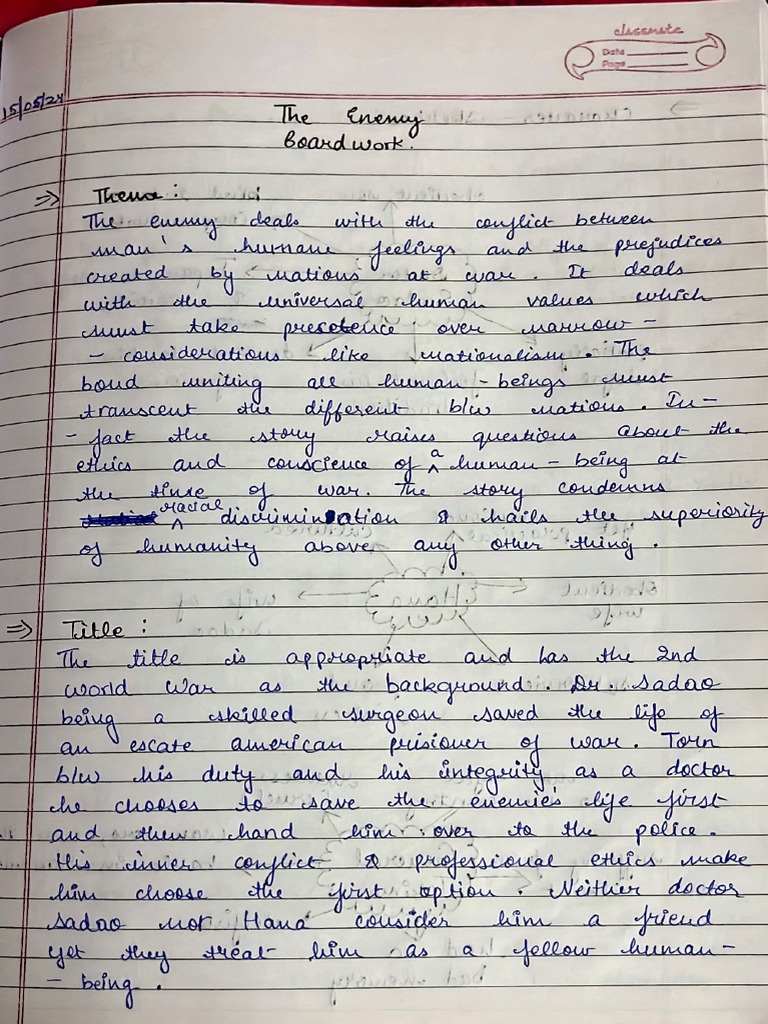 classmate
Date
Page
15/05/24
The Enemy
Boardwork.
⇒ Theme :
The enemy deals with the conflict between
man's humane feelings and the prejudices
created by nations at war. It deals
with the universal human values which
must take presetence over narrow -
- considerations like nationalism. The
bond uniting all human-beings must
transcent the different b/w nations. In-
- fact the story raises questions about the
ethics and conscience of a human-being at
the time of war. The story condemns
racial discrimination & hails the superiority
of humanity above any other thing.
⇒ Title :
The title is appropriate and has the 2nd
world war as the background. Dr. Sadao
being a skilled surgeon saved the life of
an escate american prisioner of war. Torn
b/w his duty and his integrity as a doctor
he chooses to save the enemie's life first
and then hand him over to the police.
His inner conflict & professional ethics make
him choose the first option. Neither doctor
Sadao nor Hana consider him a friend
yet they treat him as a fellow human-
- being.